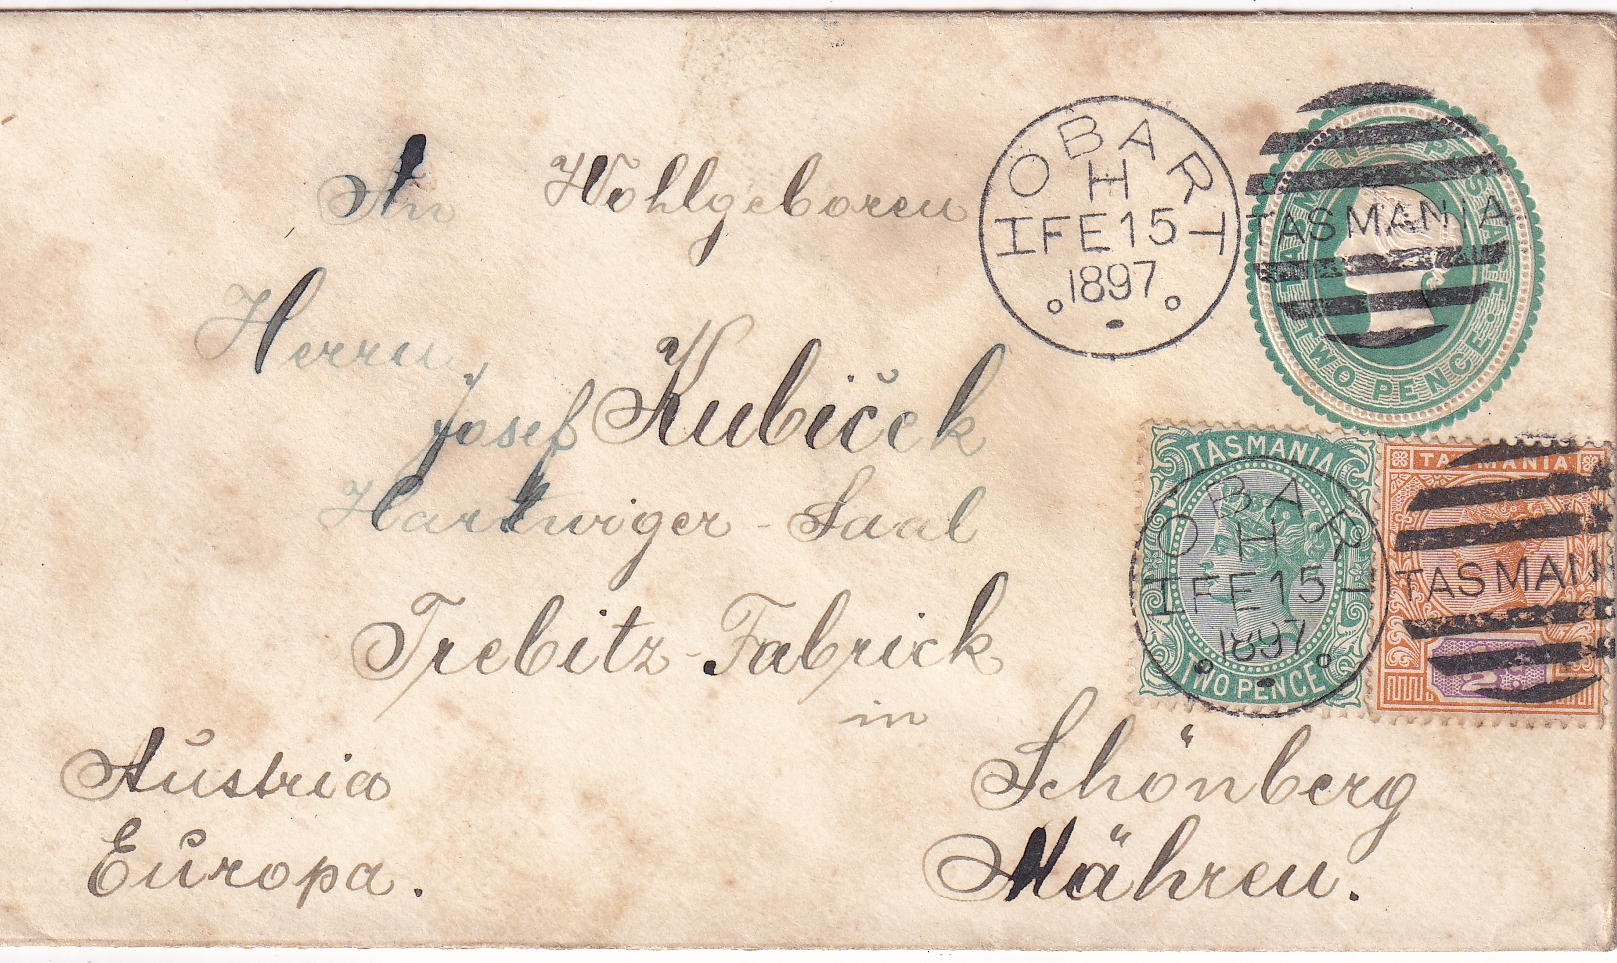 An Wohlgeboren
Herrn
Josef Kubiček
Hartwiger-Saal
Trebitz-Fabrick
in
Schönberg
Mähren.
Austria
Europa.
HOBART
H
FE 15
1897
TASMANIA
TWO PENCE
TASMANIA
TWO PENCE
HOBART
H
FE 15
1897
TASMANIA
TASMAN